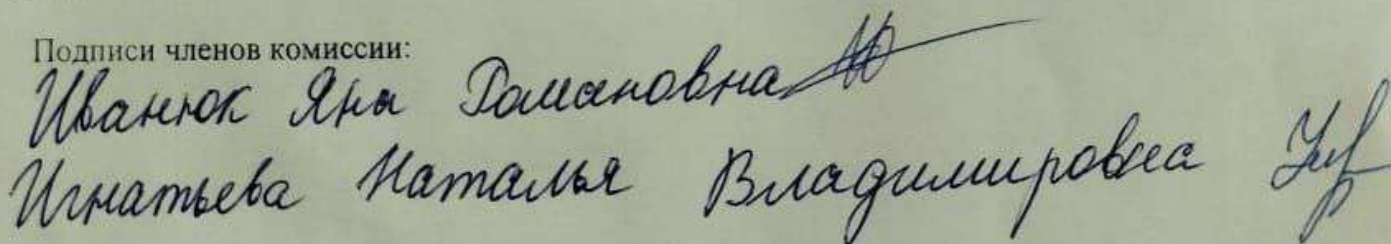 Подписи членов комиссии:
Иванюк Яна Романовна
Игнатьева Наталья Владимировна